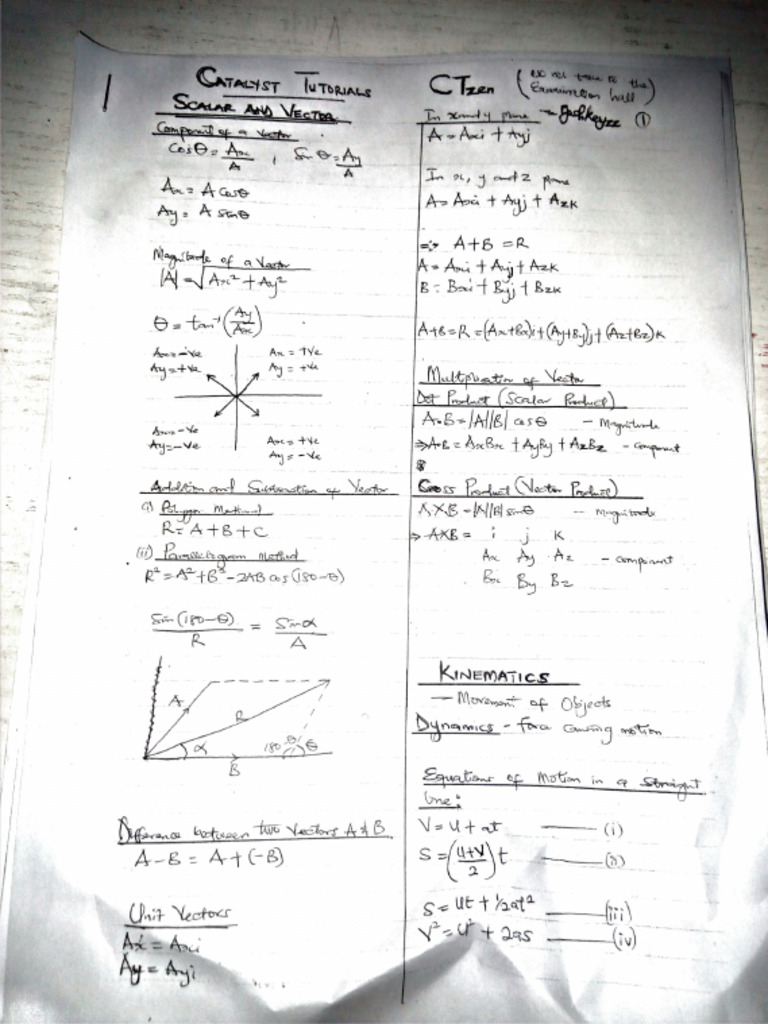 1
CATALYST TUTORIALS
SCALAR AND VECTOR
Component of a vector
Cosθ = Ax/A , Sinθ = Ay/A
Ax = A cosθ
Ay = A sinθ
Magnitude of a Vector
|A| = √Ax² + Ay²
θ = tan⁻¹(Ay/Ax)
Ax = -ve
Ay = +ve
Ax = +ve
Ay = +ve
Ax = -ve
Ay = -ve
Ax = +ve
Ay = -ve
Addition and Subtraction of Vector
(i) Polygon Method
R = A + B + C
(ii) Parallelogram Method
R² = A² + B² - 2AB cos (180 - θ)
Sin (180 - θ)/R = Sin α/A
A
R
α
180-θ
θ
B
Difference between two Vectors A & B
A - B = A + (-B)
Unit Vectors
Ax = Axi
Ay = Ayj
CTzen (Do not take to the
Examination hall)
In x and y plane
①
A = Axi + Ayj
In x, y and z plane
A = Axi + Ayj + Azk
A + B = R
A = Axi + Ayj + Azk
B = Bxi + Byj + Bzk
A+B = R = (Ax+Bx)i + (Ay+By)j + (Az+Bz)k
Multiplication of Vector
Dot Product (Scalar Product)
A•B = |A||B| cosθ — Magnitude
⇒ A•B = AxBx + AyBy + AzBz - component
Cross Product (Vector Product)
AXB = |A||B| sinθ — Magnitude
⇒ AXB = i j k
Ax Ay Az — component
Bx By Bz
KINEMATICS
— Movement of Objects
Dynamics - force causing motion
Equations of Motion in a Straight
line:
V = U + at —— (i)
S = (U+V/2)t —— (ii)
S = Ut + ½at² —— (iii)
V² = U² + 2as —— (iv)